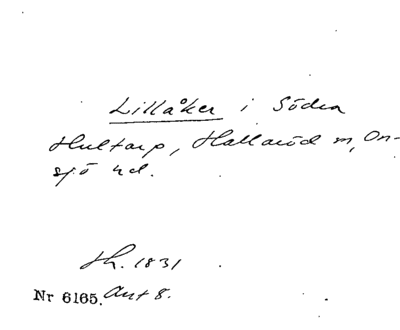 Lillåker i Södra
Hultarp, Hallaröd sn, On-
sjö hd.
Hh. 1831
Nr 6165. Ant 8.